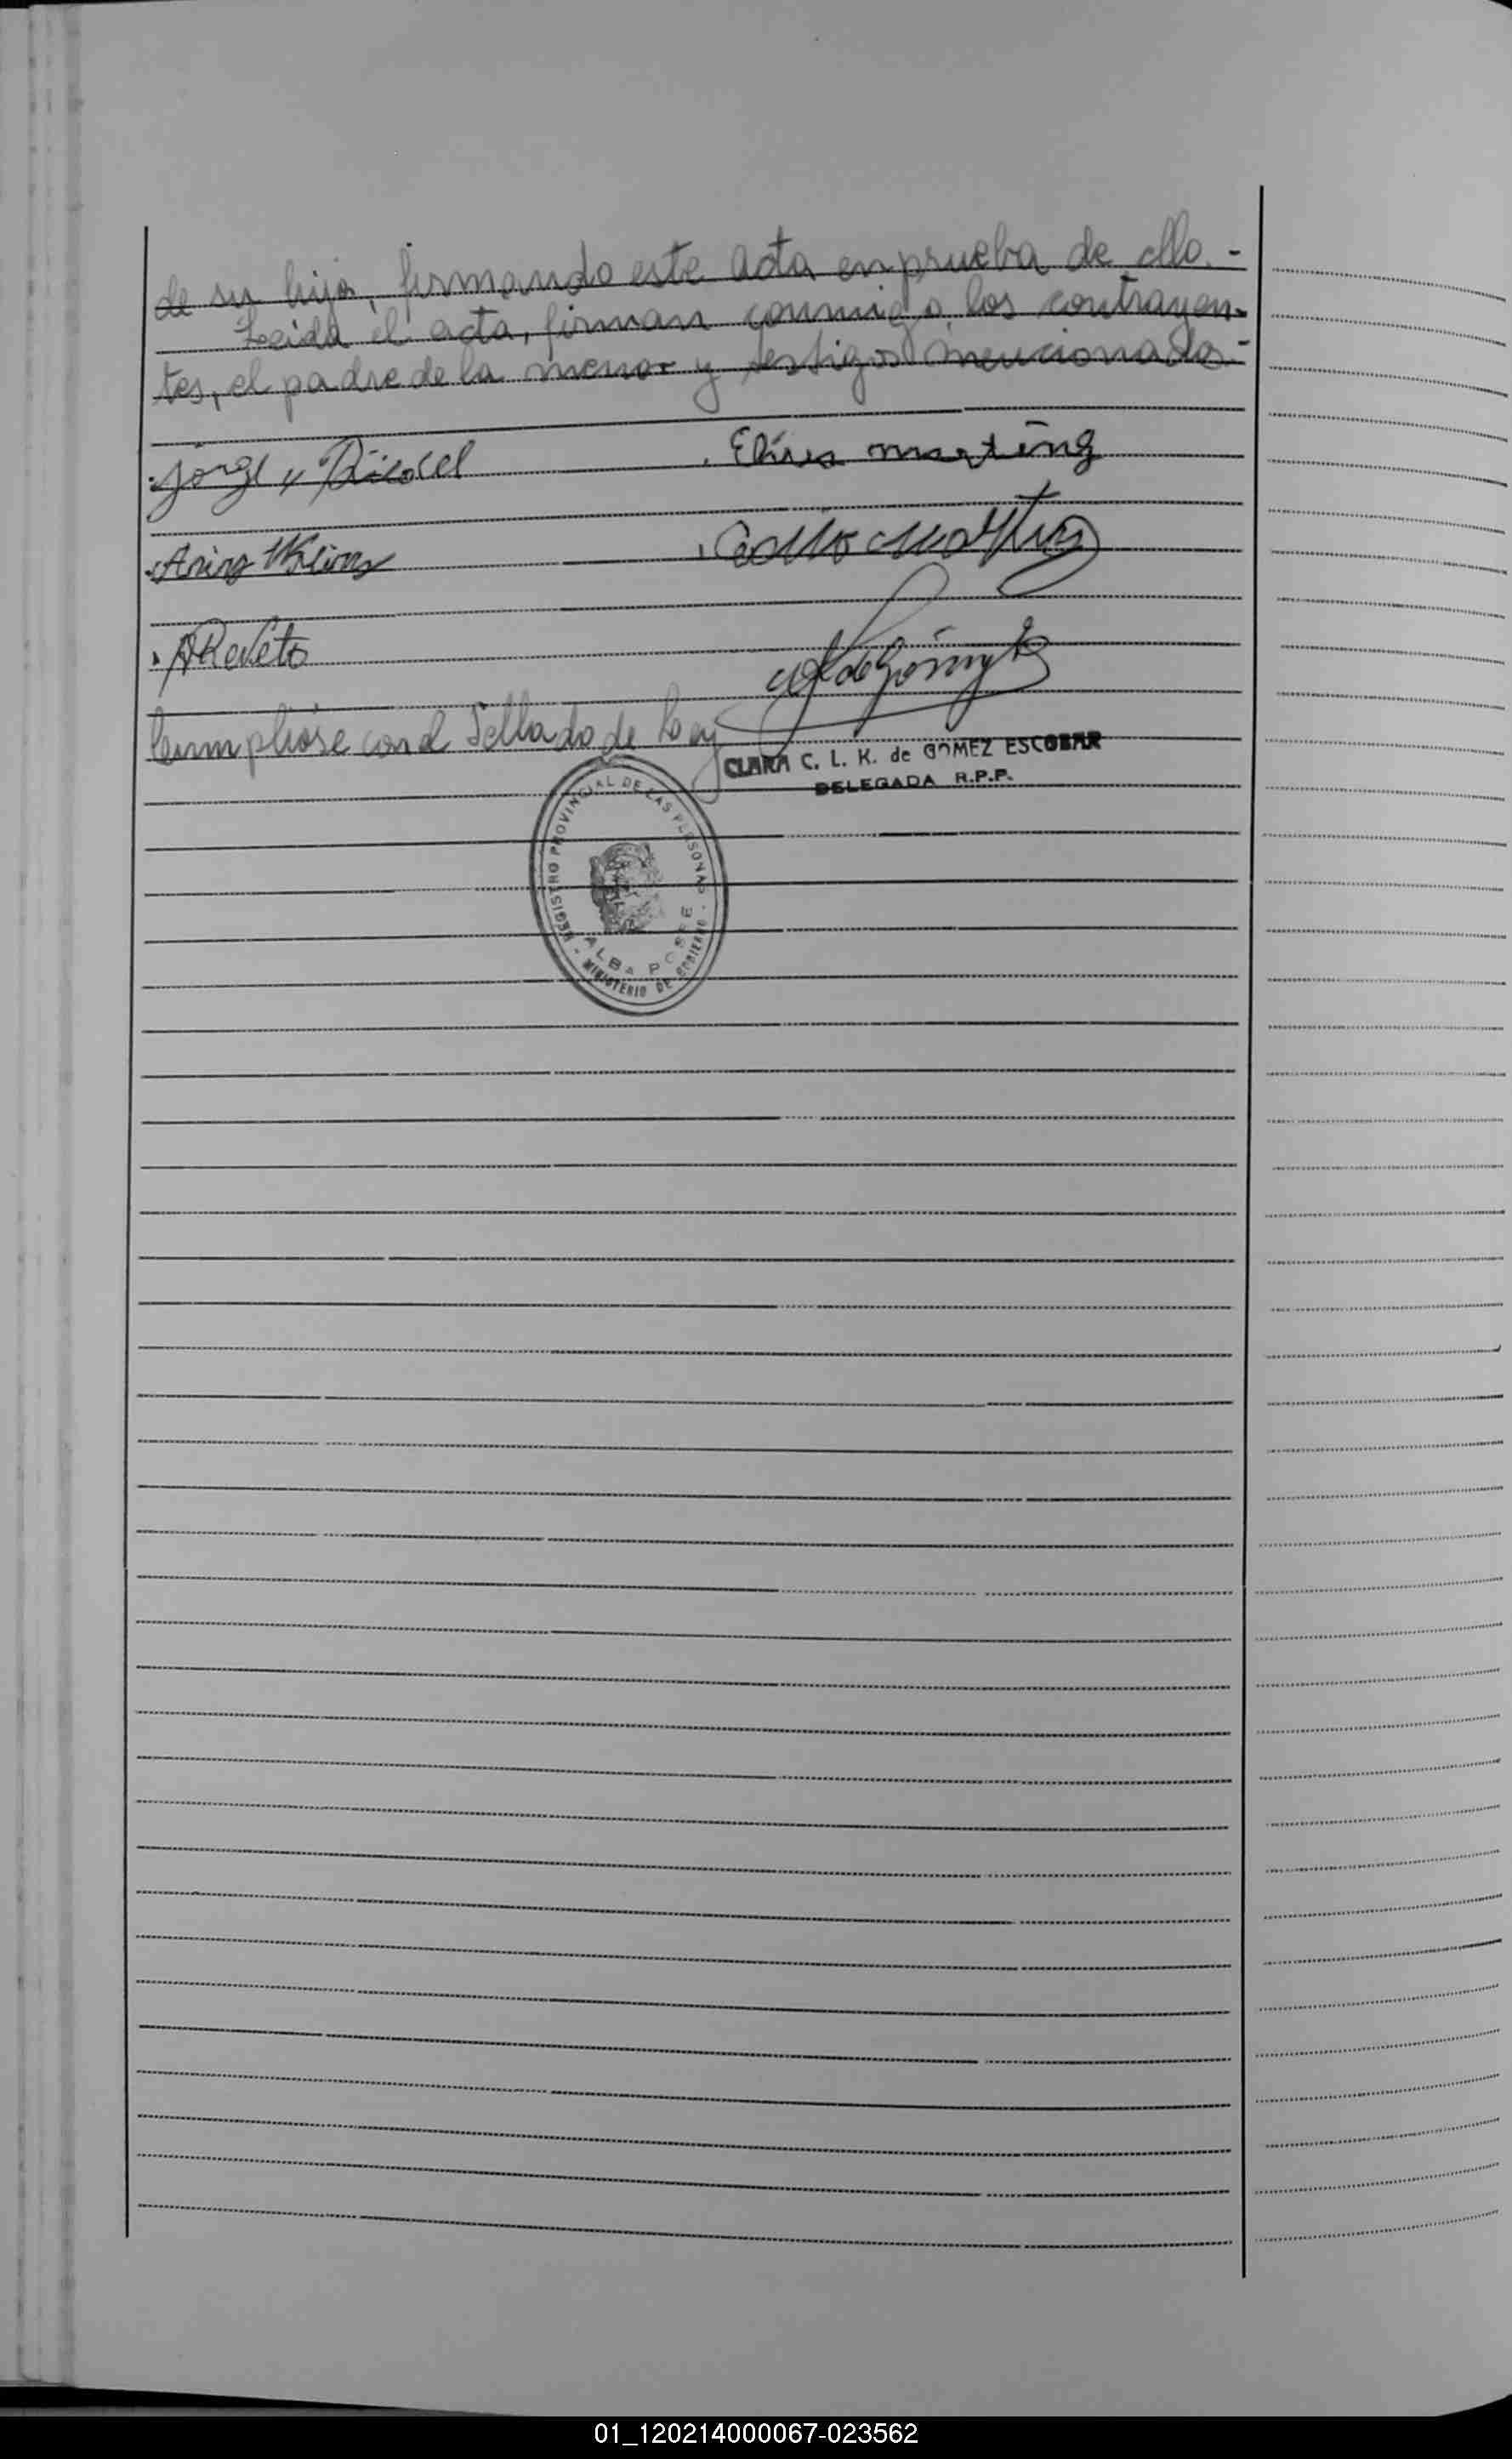 de su hija, firmando este acta en prueba de ello.-
Leida el acta, firman conmigo los contrayen-
tes, el padre de la menor y testigos mencionados.-
Jorge
Elira marting
Cumpliose con el Sellado de Ley
CLARA C. L. K. de GOMEZ ESCOBAR
DELEGADA R.P.P.
REGISTRO PROVINCIAL DE LAS PERSONAS - MINISTERIO DE GOBIERNO -
ALBA POSSE
01_120214000067-023562